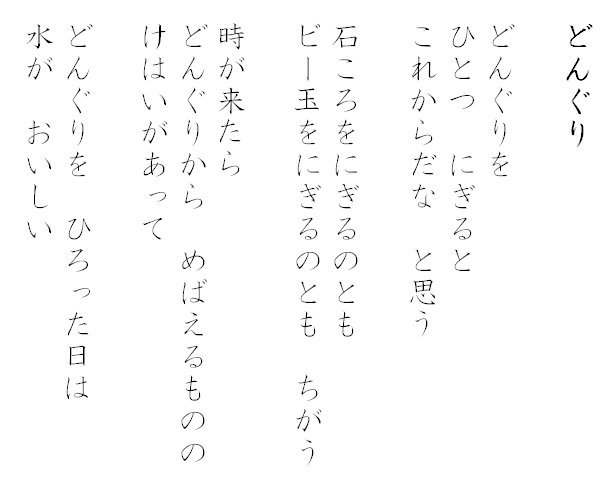 どんぐり
どんぐりを
ひとつ　にぎると
これからだな　と思う
石ころをにぎるのとも
ビー玉をにぎるのとも　ちがう
時が来たら
どんぐりから　めばえるものの
けはいがあって
どんぐりを　ひろった日は
水が　おいしい